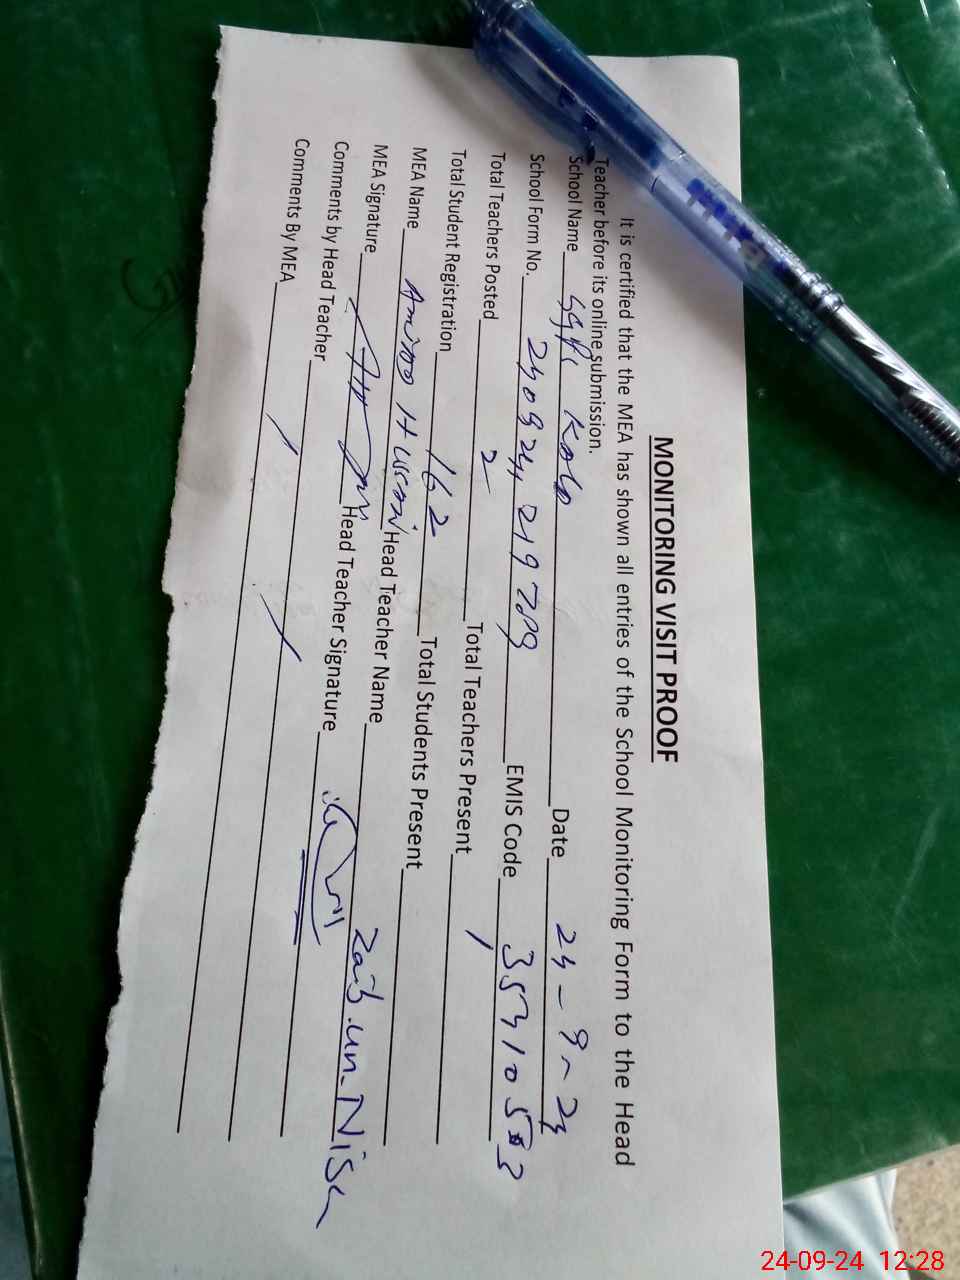 MONITORING VISIT PROOF
It is certified that the MEA has shown all entries of the School Monitoring Form to the Head
Teacher before its online submission.
School Name Date 24-9-24
School Form No. 240924219789 EMIS Code
Total Teachers Posted 2 Total Teachers Present 1
Total Student Registration 162 Total Students Present
MEA Name Hussain Head Teacher Name Zaib.un.Nisa
MEA Signature Head Teacher Signature
Comments by Head Teacher
Comments By MEA
24-09-24 12:28